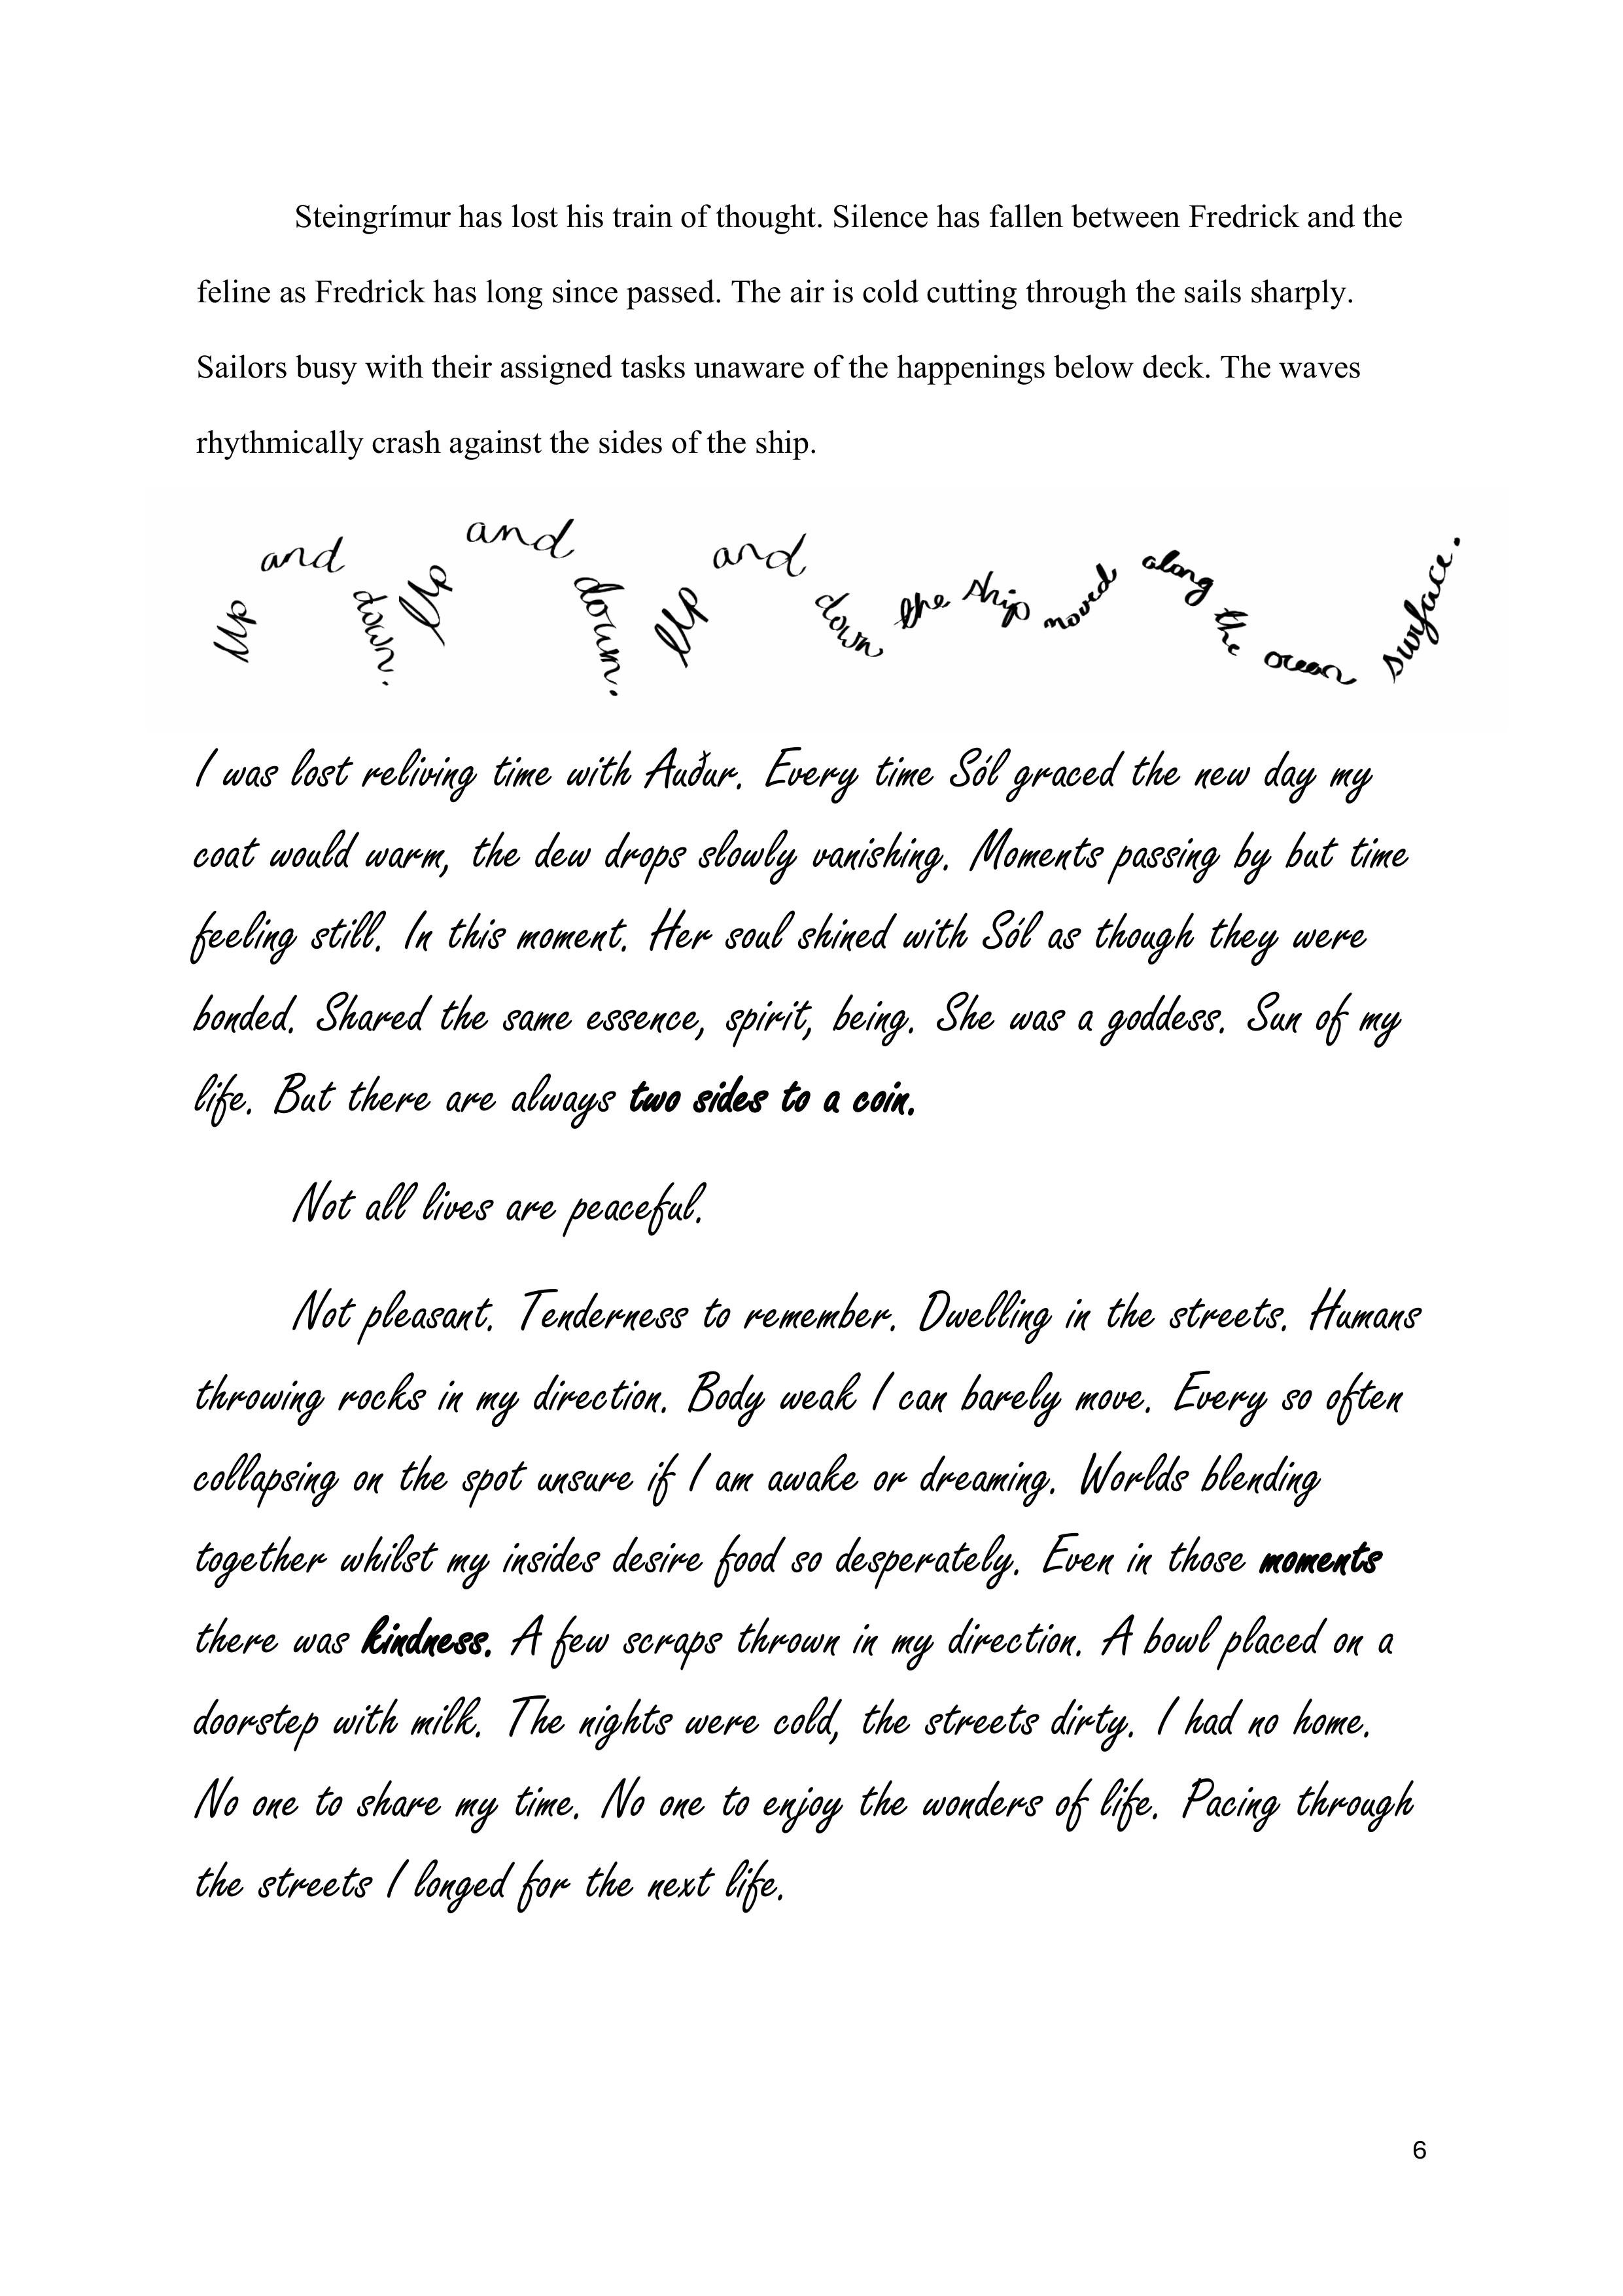 Steingrímur has lost his train of thought. Silence has fallen between Fredrick and the
feline as Fredrick has long since passed. The air is cold cutting through the sails sharply.
Sailors busy with their assigned tasks unaware of the happenings below deck. The waves
rhythmically crash against the sides of the ship.
Up and down. Up and down. Up and down the ship moved along the ocean surface.
I was lost reliving time with Auður. Every time Sól graced the new day my
coat would warm, the dew drops slowly vanishing. Moments passing by but time
feeling still. In this moment. Her soul shined with Sól as though they were
bonded. Shared the same essence, spirit, being. She was a goddess. Sun of my
life. But there are always two sides to a coin.
Not all lives are peaceful.
Not pleasant. Tenderness to remember. Dwelling in the streets. Humans
throwing rocks in my direction. Body weak I can barely move. Every so often
collapsing on the spot unsure if I am awake or dreaming. Worlds blending
together whilst my insides desire food so desperately. Even in those moments
there was kindness. A few scraps thrown in my direction. A bowl placed on a
doorstep with milk. The nights were cold, the streets dirty. I had no home.
No one to share my time. No one to enjoy the wonders of life. Pacing through
the streets I longed for the next life.
6